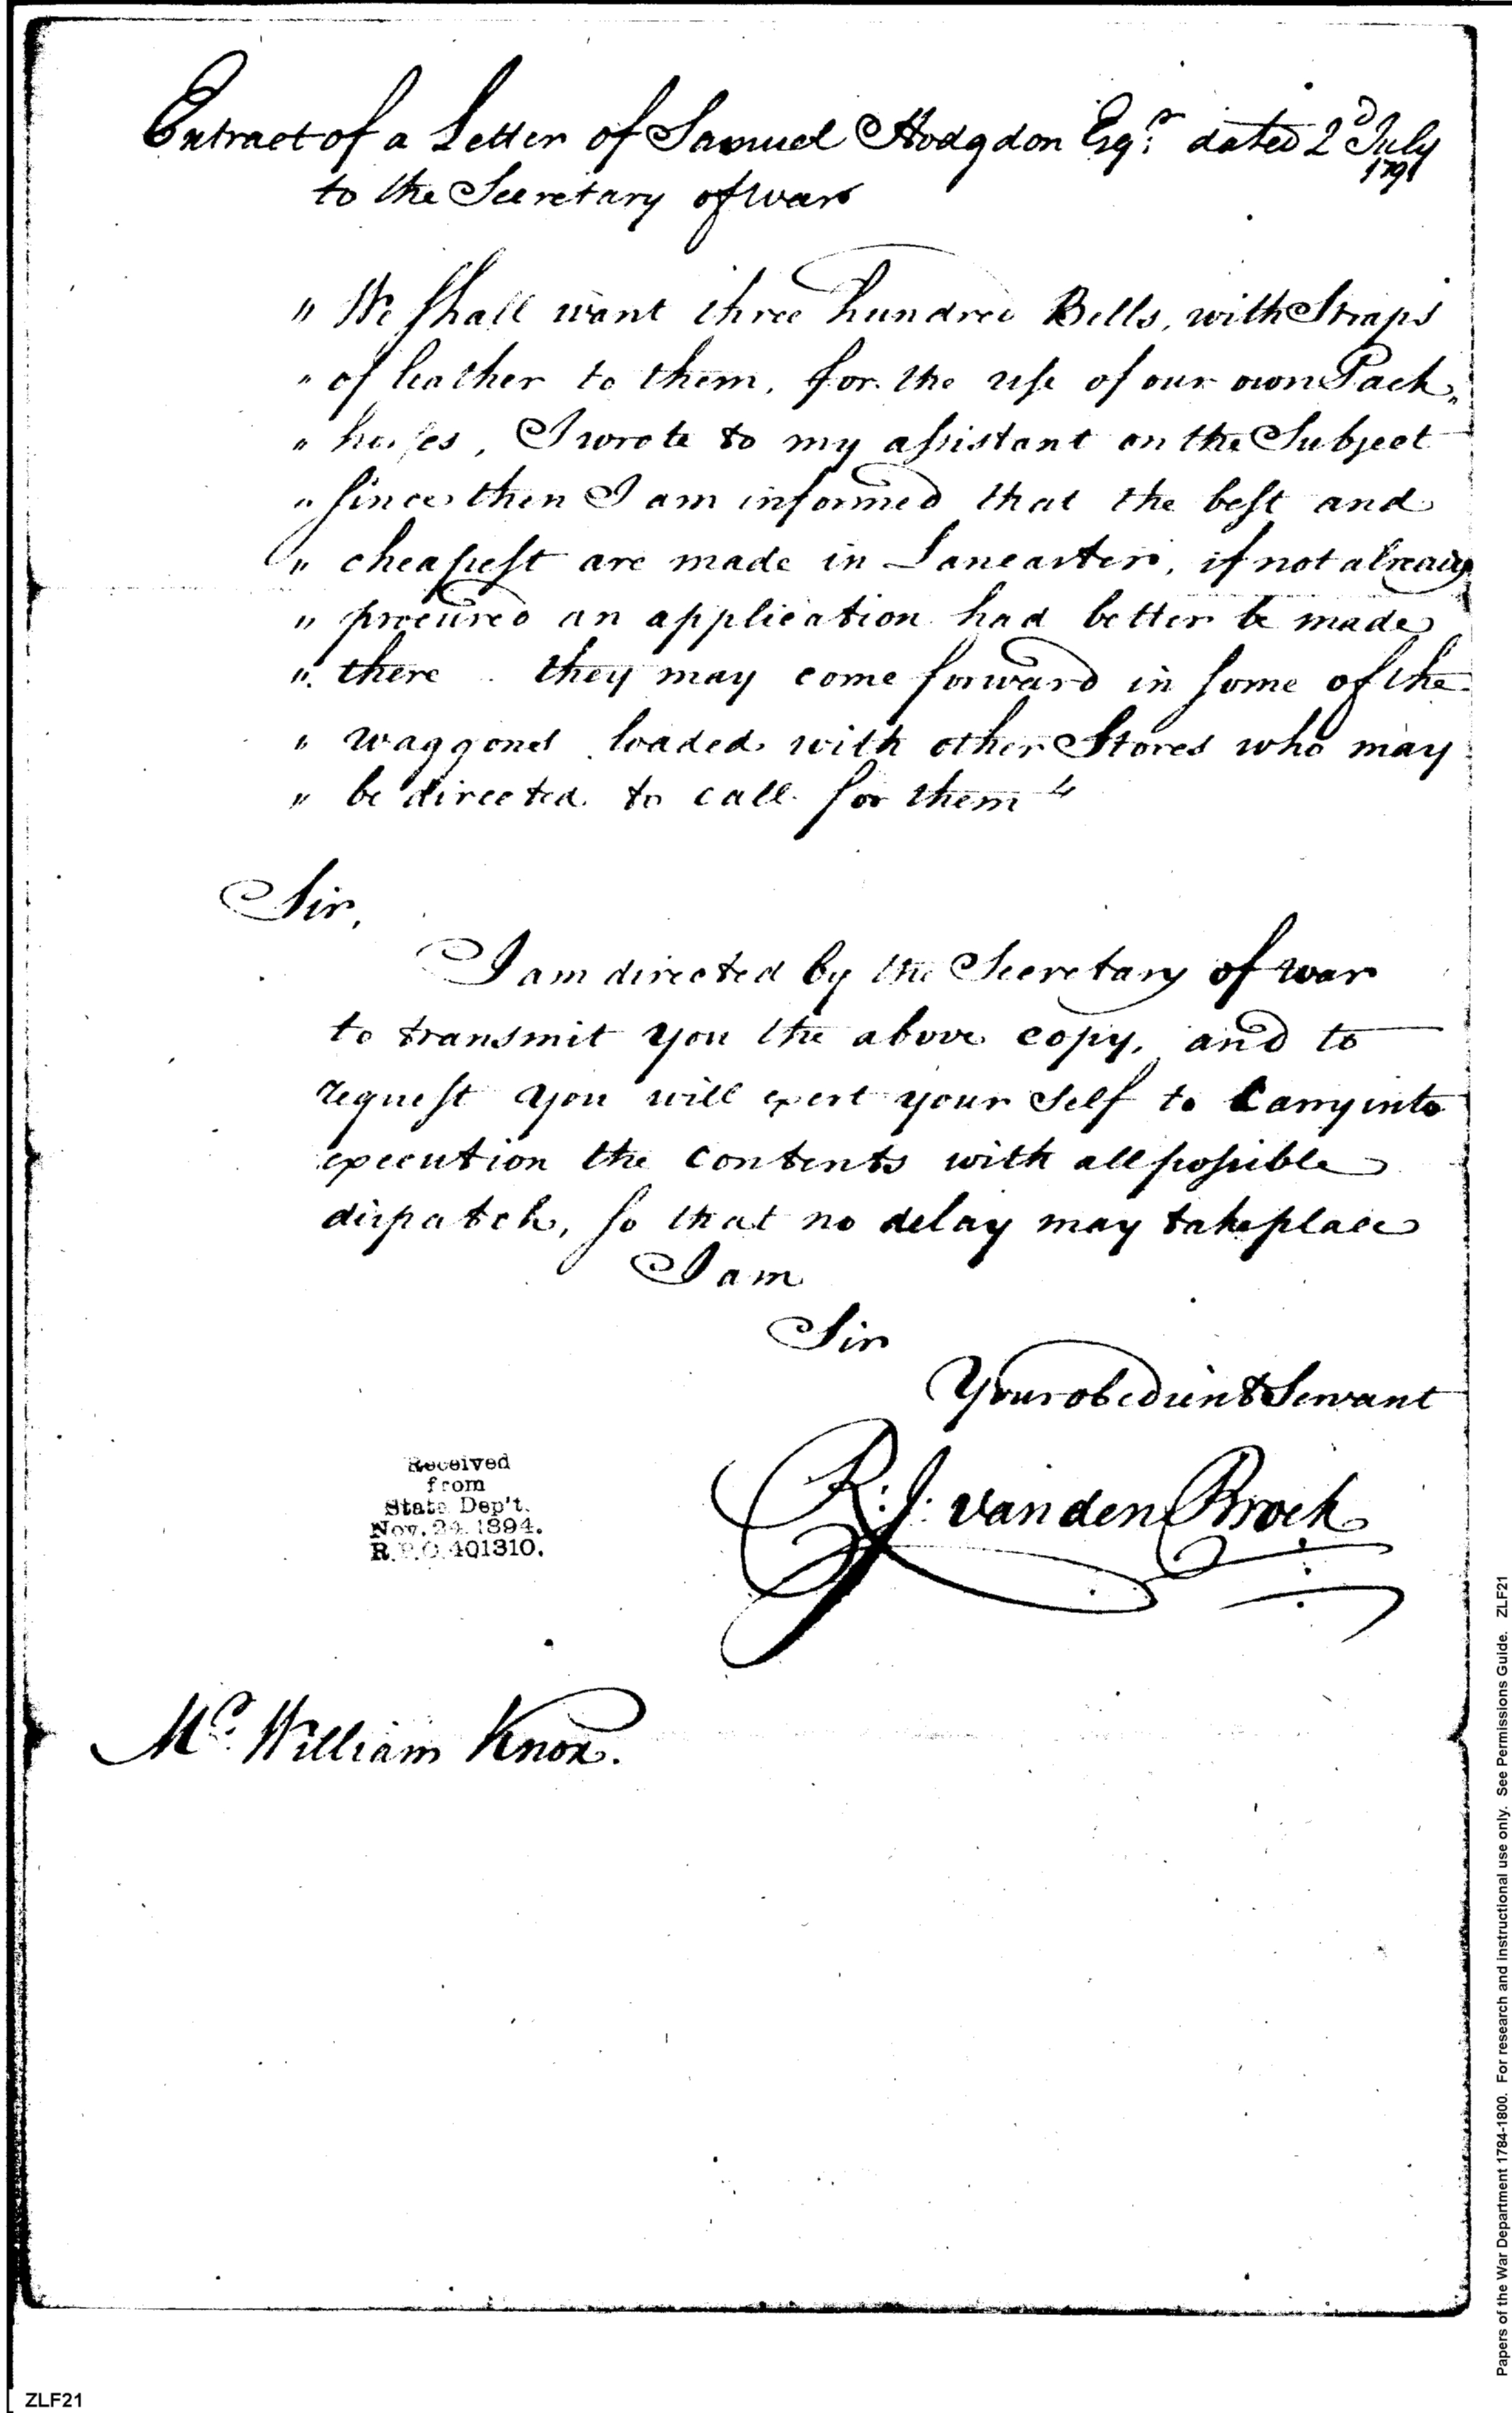 Extract of a Letter of Samuel Hodgdon Esqr. dated 2d July
1791
to the Secretary of war
" We shall want three hundred Bells, with Straps
" of leather to them, for the use of our own Pack„
" horses, I wrote to my assistant on the Subject
" since then I am informed that the best and
" cheapest are made in Lancaster, if not already
" procured an application had better be made
" there . they may come forward in some of the
" waggons loaded with other Stores who may
" be directed to call for them "
Sir,
I am directed by the Secretary of war
to transmit you the above copy, and to
request you will exert your self to Carry into
execution the Contents with all possible
dispatch, so that no delay may take place
I am
Sir
Your obedient Servant
R: J: vanden Broek
Received
from
State Dep't.
Nov. 24. 1894.
R.P.O. 401310.
Mr. William Knox.
Papers of the War Department 1784-1800. For research and instructional use only. See Permissions Guide. ZLF21
ZLF21